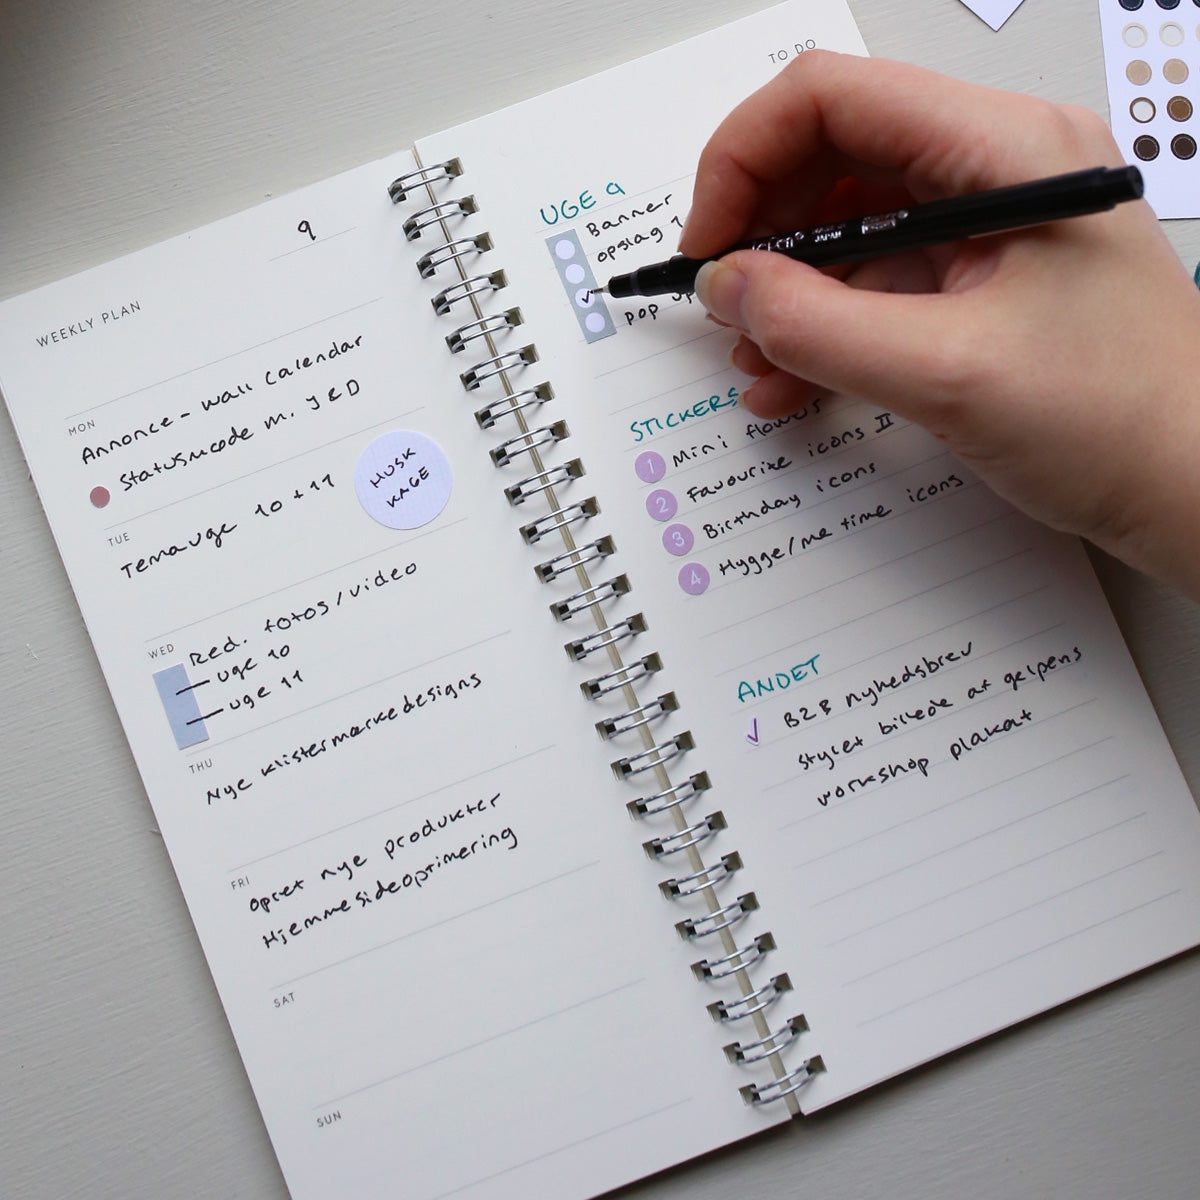 WEEKLY PLAN
9
MON
Annonce - wall calendar
Statusmøde m. J & D
TUE
Temauge 10 + 11
HUSK
KAGE
WED
Red. fotos/video
uge 10
uge 11
THU
Nye klistermærkedesigns
FRI
Opret nye produkter
Hjemmesideoptimering
SAT
SUN
TO DO
UGE 9
Banner
opslag 1
pop up
STICKERS
1 Mini flowers
2 Favourite icons II
3 Birthday icons
4 Hygge/me time icons
ANDET
B2B nyhedsbrev
stylet billede af gelpens
workshop plakat